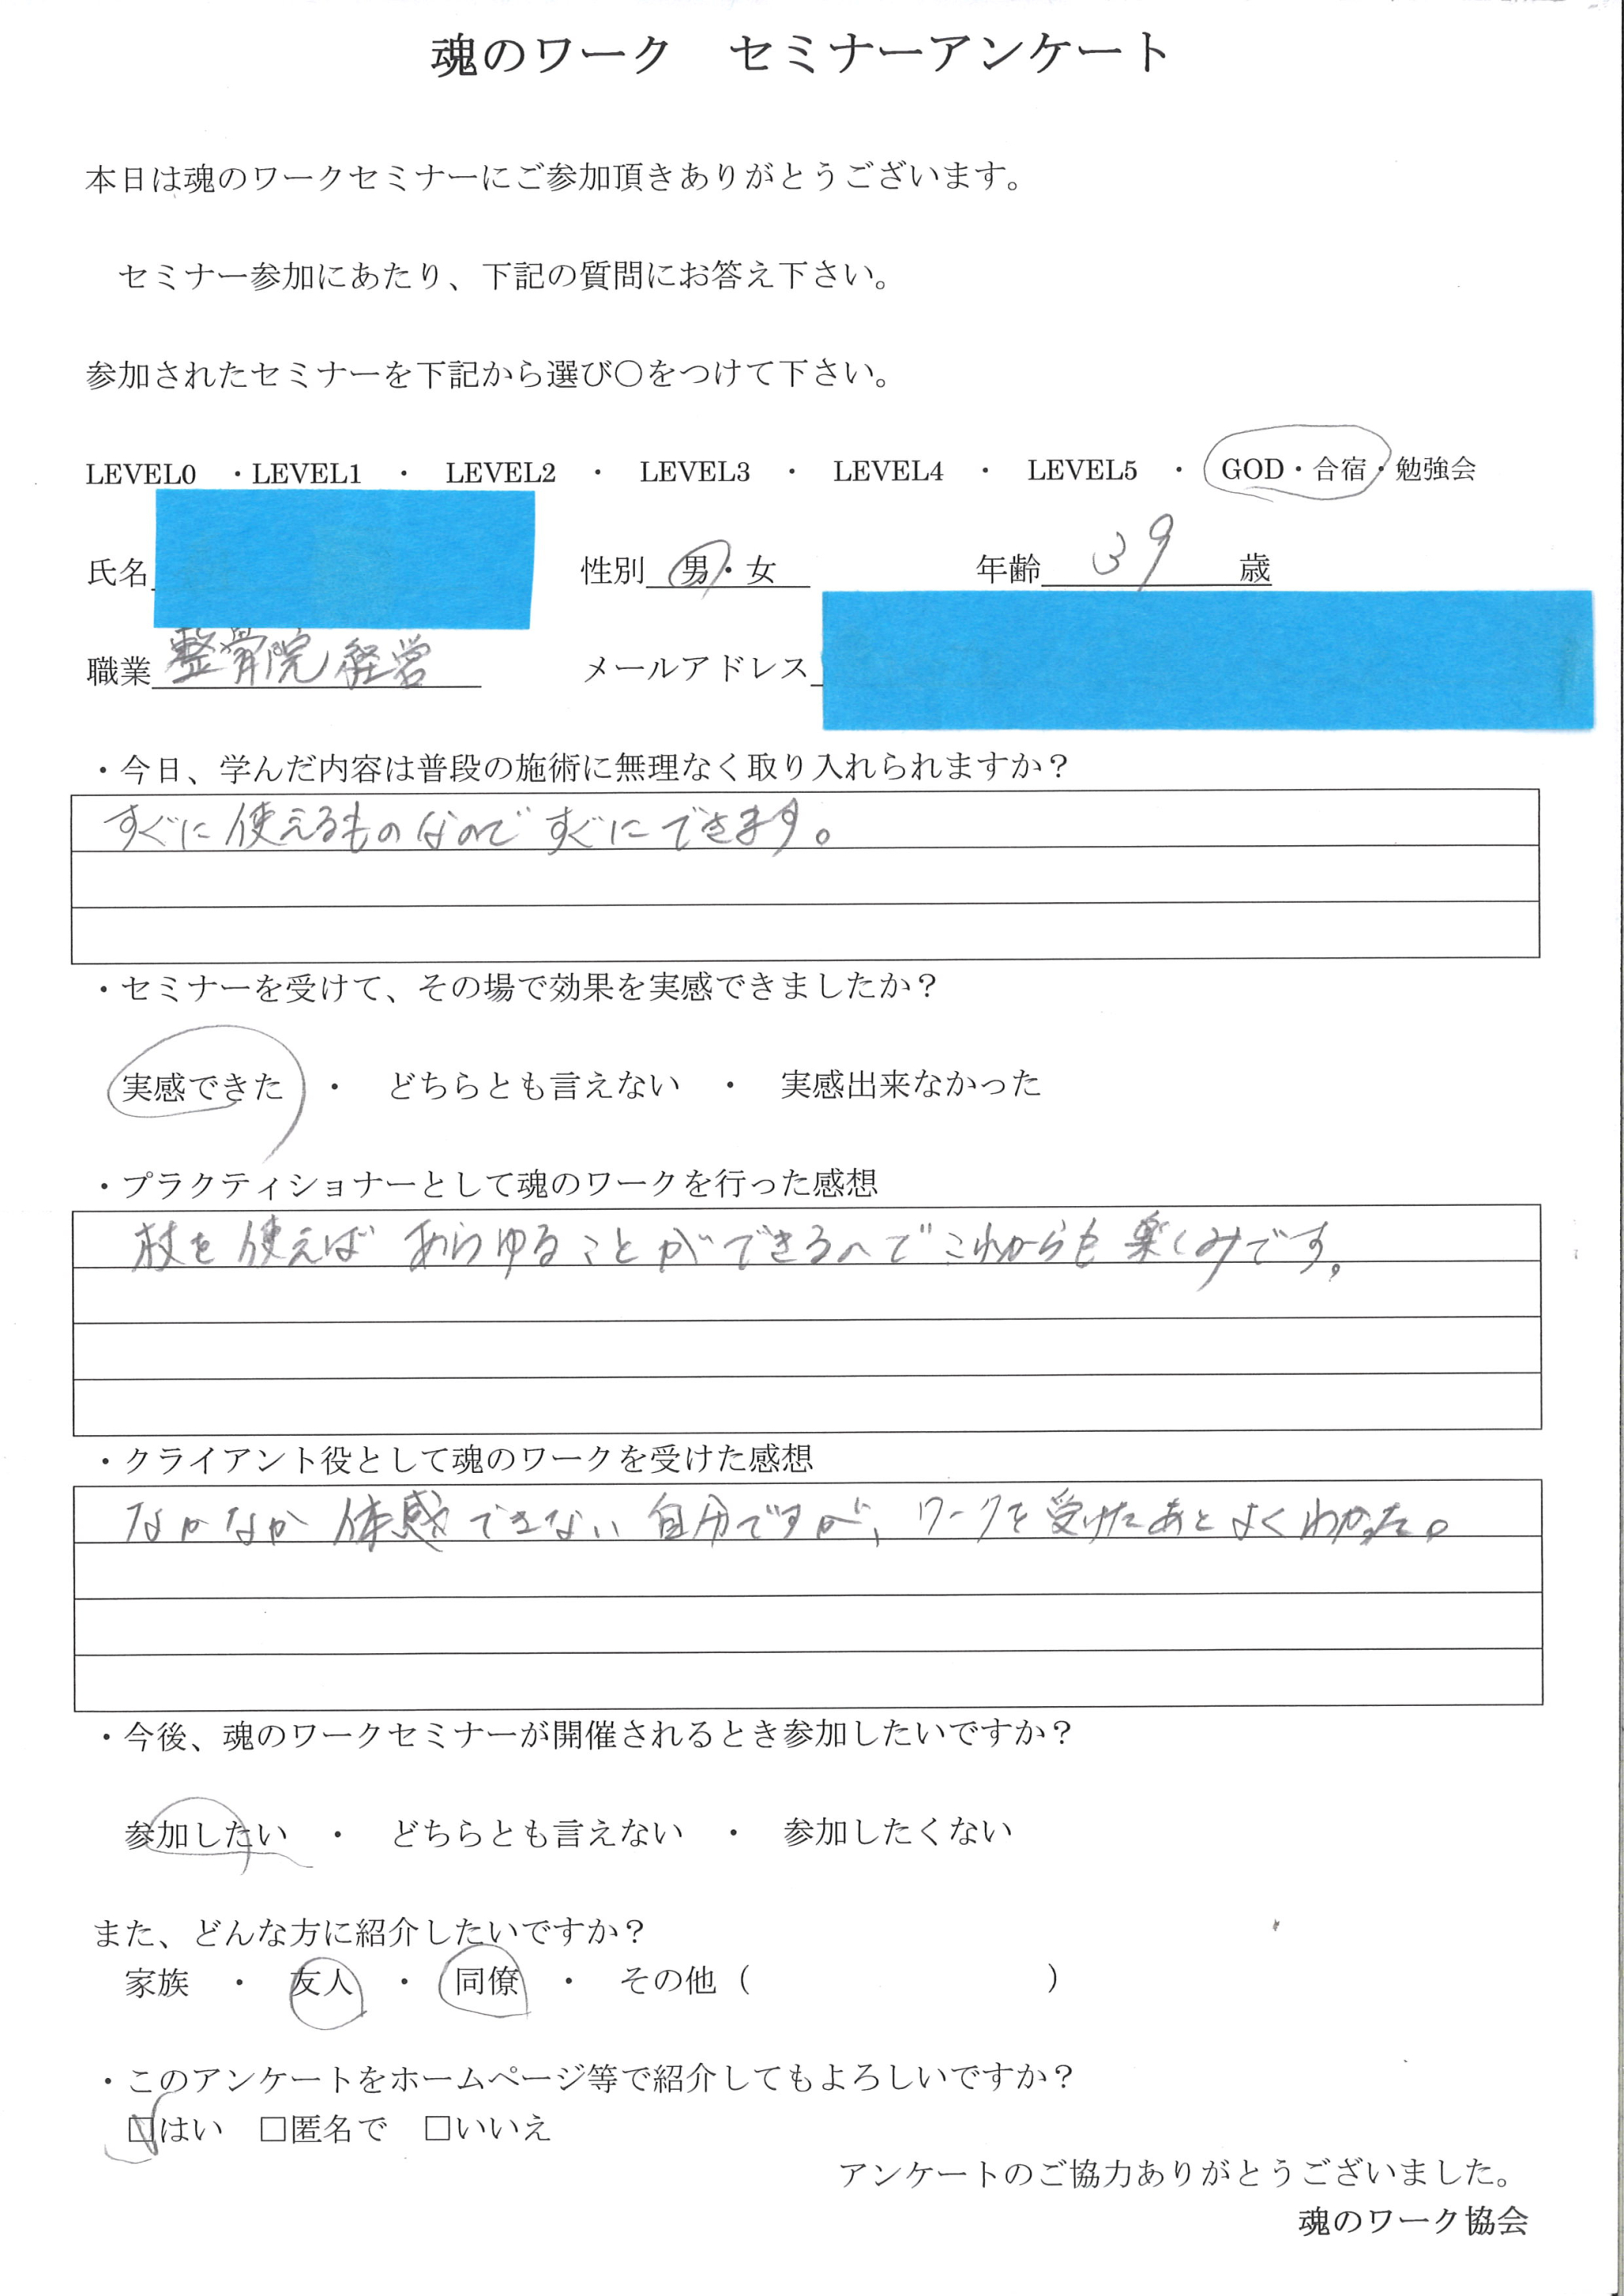 魂のワーク　セミナーアンケート
本日は魂のワークセミナーにご参加頂きありがとうございます。
セミナー参加にあたり、下記の質問にお答え下さい。
参加されたセミナーを下記から選び〇をつけて下さい。
LEVEL0　・LEVEL1　・　LEVEL2　・　LEVEL3　・　LEVEL4　・　LEVEL5　・　GOD・合宿・勉強会
氏名　性別　男・女　年齢　39　歳
職業　整骨院 経営　メールアドレス
・今日、学んだ内容は普段の施術に無理なく取り入れられますか？
すぐに使えるものなので すぐにできます。
・セミナーを受けて、その場で効果を実感できましたか？
実感できた　・　どちらとも言えない　・　実感出来なかった
・プラクティショナーとして魂のワークを行った感想
杖を使えば あらゆることができるので これからも楽しみです。
・クライアント役として魂のワークを受けた感想
なかなか体感できない自分ですが、ワークを受けたあとよくわかった。
・今後、魂のワークセミナーが開催されるとき参加したいですか？
参加したい　・　どちらとも言えない　・　参加したくない
また、どんな方に紹介したいですか？
家族　・　友人　・　同僚　・　その他（　　　　　　　　　）
・このアンケートをホームページ等で紹介してもよろしいですか？
☑はい　□匿名で　□いいえ
アンケートのご協力ありがとうございました。
魂のワーク協会